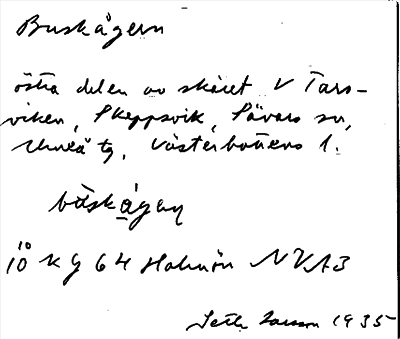 Buskågern
östra delen av skäret V Tars-
viken, Skeppsvik, Sävars sn,
Umeå tg, Västerbottens l.
bùskågen
10 10 K g 64 Holmön NV A3
Seth Larsson 1935